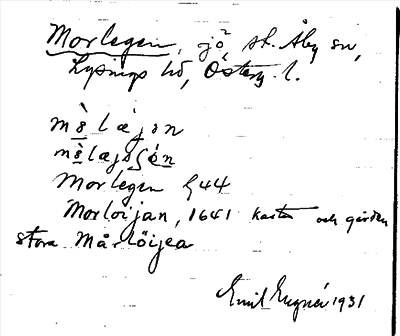 Morlegen, sjö, St. Åby sn,
Lysings hd, Österg. l.
mò̀læjən
Morlegen G44
Morlöijan, 1641 karta och gården
stora Mårlöijea
Emil 1931